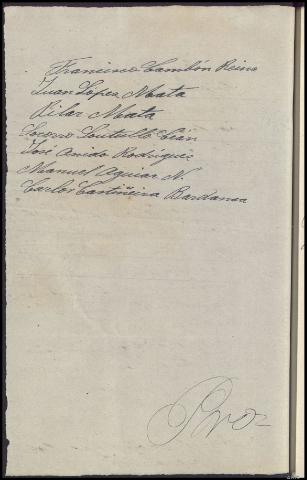 Francisco Cambón Reino
Juan López Mata
Pilar Mata
Socorro Sutullo Cián
José Amido Rodríguez
Manuel Aguiar N.
Carlos Castiñeira Bardanca
Pro=